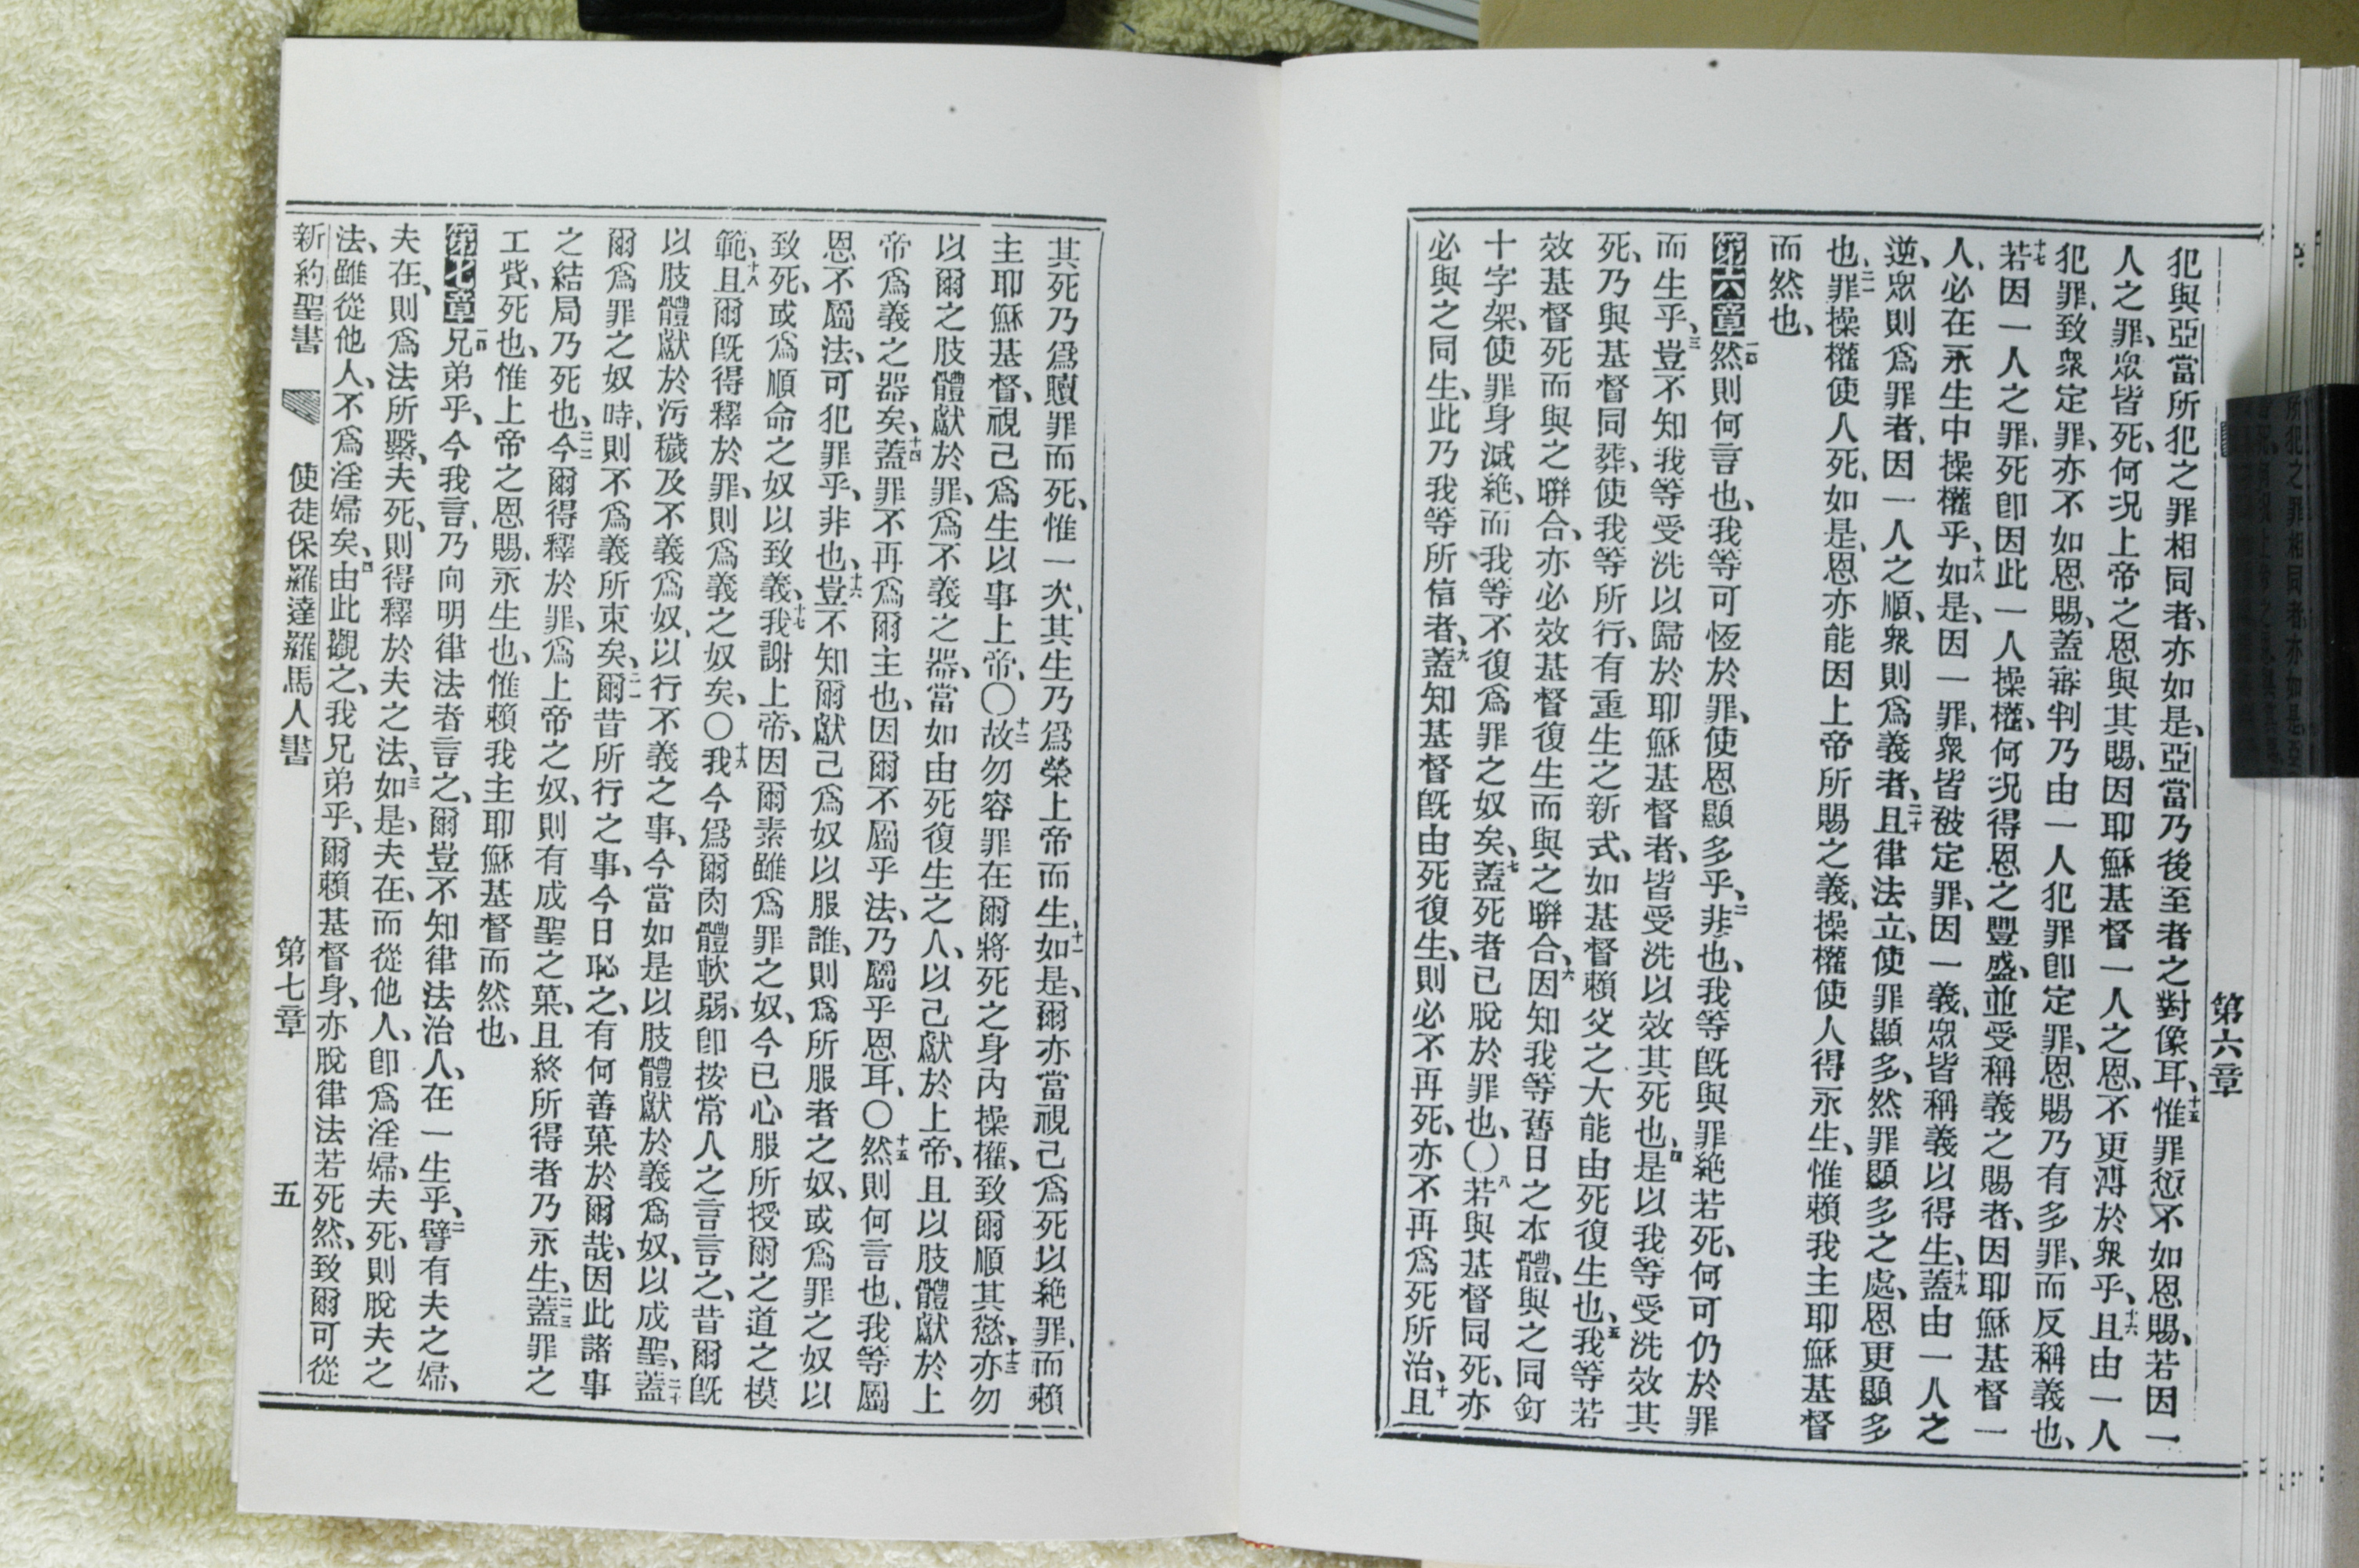 第六章
犯與亞當所犯之罪相同者、亦如是、亞當乃後至者之對像耳、十五惟罪愆不如恩賜、若因一
人之罪、眾皆死、何況上帝之恩與其賜、因耶穌基督一人之恩、不更溥於衆乎、十六且由一人
犯罪、致衆定罪、亦不如恩賜、蓋審判乃由一人犯罪卽定罪、恩賜乃有多罪、而反稱義也、
十七若因一人之罪、死卽因此一人操權、何況得恩之豐盛、並受稱義之賜者、因耶穌基督一
人、必在永生中操權乎、十八如是、因一罪、衆皆被定罪、因一義、眾皆稱義以得生、十九蓋由一人之
逆、眾則爲罪者、因一人之順、衆則爲義者、二十且律法立、使罪顯多、然罪顯多之處、恩更顯多
也、二一罪操權使人死、如是、恩亦能因上帝所賜之義、操權使人得永生、惟賴我主耶穌基督
而然也、
第六章一節然則何言也、我等可恆於罪、使恩顯多乎、二非也、我等旣與罪絕若死、何可仍於罪
而生乎、三豈不知我等受洗以歸於耶穌基督者、皆受洗以效其死也、四是以我等受洗效其
死、乃與基督同葬、使我等所行、有重生之新式、如基督賴父之大能由死復生也、五我等若
效基督死而與之聯合、亦必效基督復生而與之聯合、六因知我等舊日之本體、與之同釘
十字架、使罪身滅絕、而我等不復爲罪之奴矣、七蓋死者已脫於罪也、〇八若與基督同死、亦
必與之同生、此乃我等所信者、九蓋知基督旣由死復生、則必不再死、亦不再爲死所治、十且
其死乃爲贖罪而死、惟一次、其生乃爲榮上帝而生、十一如是、爾亦當視己爲死以絕罪、而賴
主耶穌基督、視己爲生以事上帝、〇十二故勿容罪在爾將死之身內操權、致爾順其慾、十三亦勿
以爾之肢體獻於罪、爲不義之器、當如由死復生之人、以己獻於上帝、且以肢體獻於上
帝爲義之器矣、十四蓋罪不再爲爾主也、因爾不屬乎法、乃屬乎恩耳、〇十五然則何言也、我等屬
恩不屬法、可犯罪乎、非也、十六豈不知爾獻己爲奴以服誰、則爲所服者之奴、或爲罪之奴以
致死、或爲順命之奴以致義、十七我謝上帝、因爾素雖爲罪之奴、今已心服所授爾之道之模
範、十八且爾旣得釋於罪、則爲義之奴矣、〇十九我今爲爾肉體軟弱、卽按常人之言言之、昔爾旣
以肢體獻於污穢及不義爲奴、以行不義之事、今當如是以肢體獻於義爲奴、以成聖、二十蓋
爾爲罪之奴時、則不爲義所束矣、二一爾昔所行之事、今日恥之、有何善菓於爾哉、因此諸事
之結局乃死也、二二今爾得釋於罪、爲上帝之奴、則有成聖之菓、且終所得者乃永生、二三蓋罪之
工貲、死也、惟上帝之恩賜、永生也、惟賴我主耶穌基督而然也、
第七章一節兄弟乎、今我言、乃向明律法者言之、爾豈不知律法治人、在一生乎、二譬有夫之婦、
夫在、則爲法所繫、夫死、則得釋於夫之法、三如是、夫在、而從他人、卽爲淫婦、夫死、則脫夫之
法、雖從他人、不爲淫婦矣、四由此觀之、我兄弟乎、爾賴基督身、亦脫律法若死然、致爾可從
新約聖書 使徒保羅達羅馬人書 第七章 五